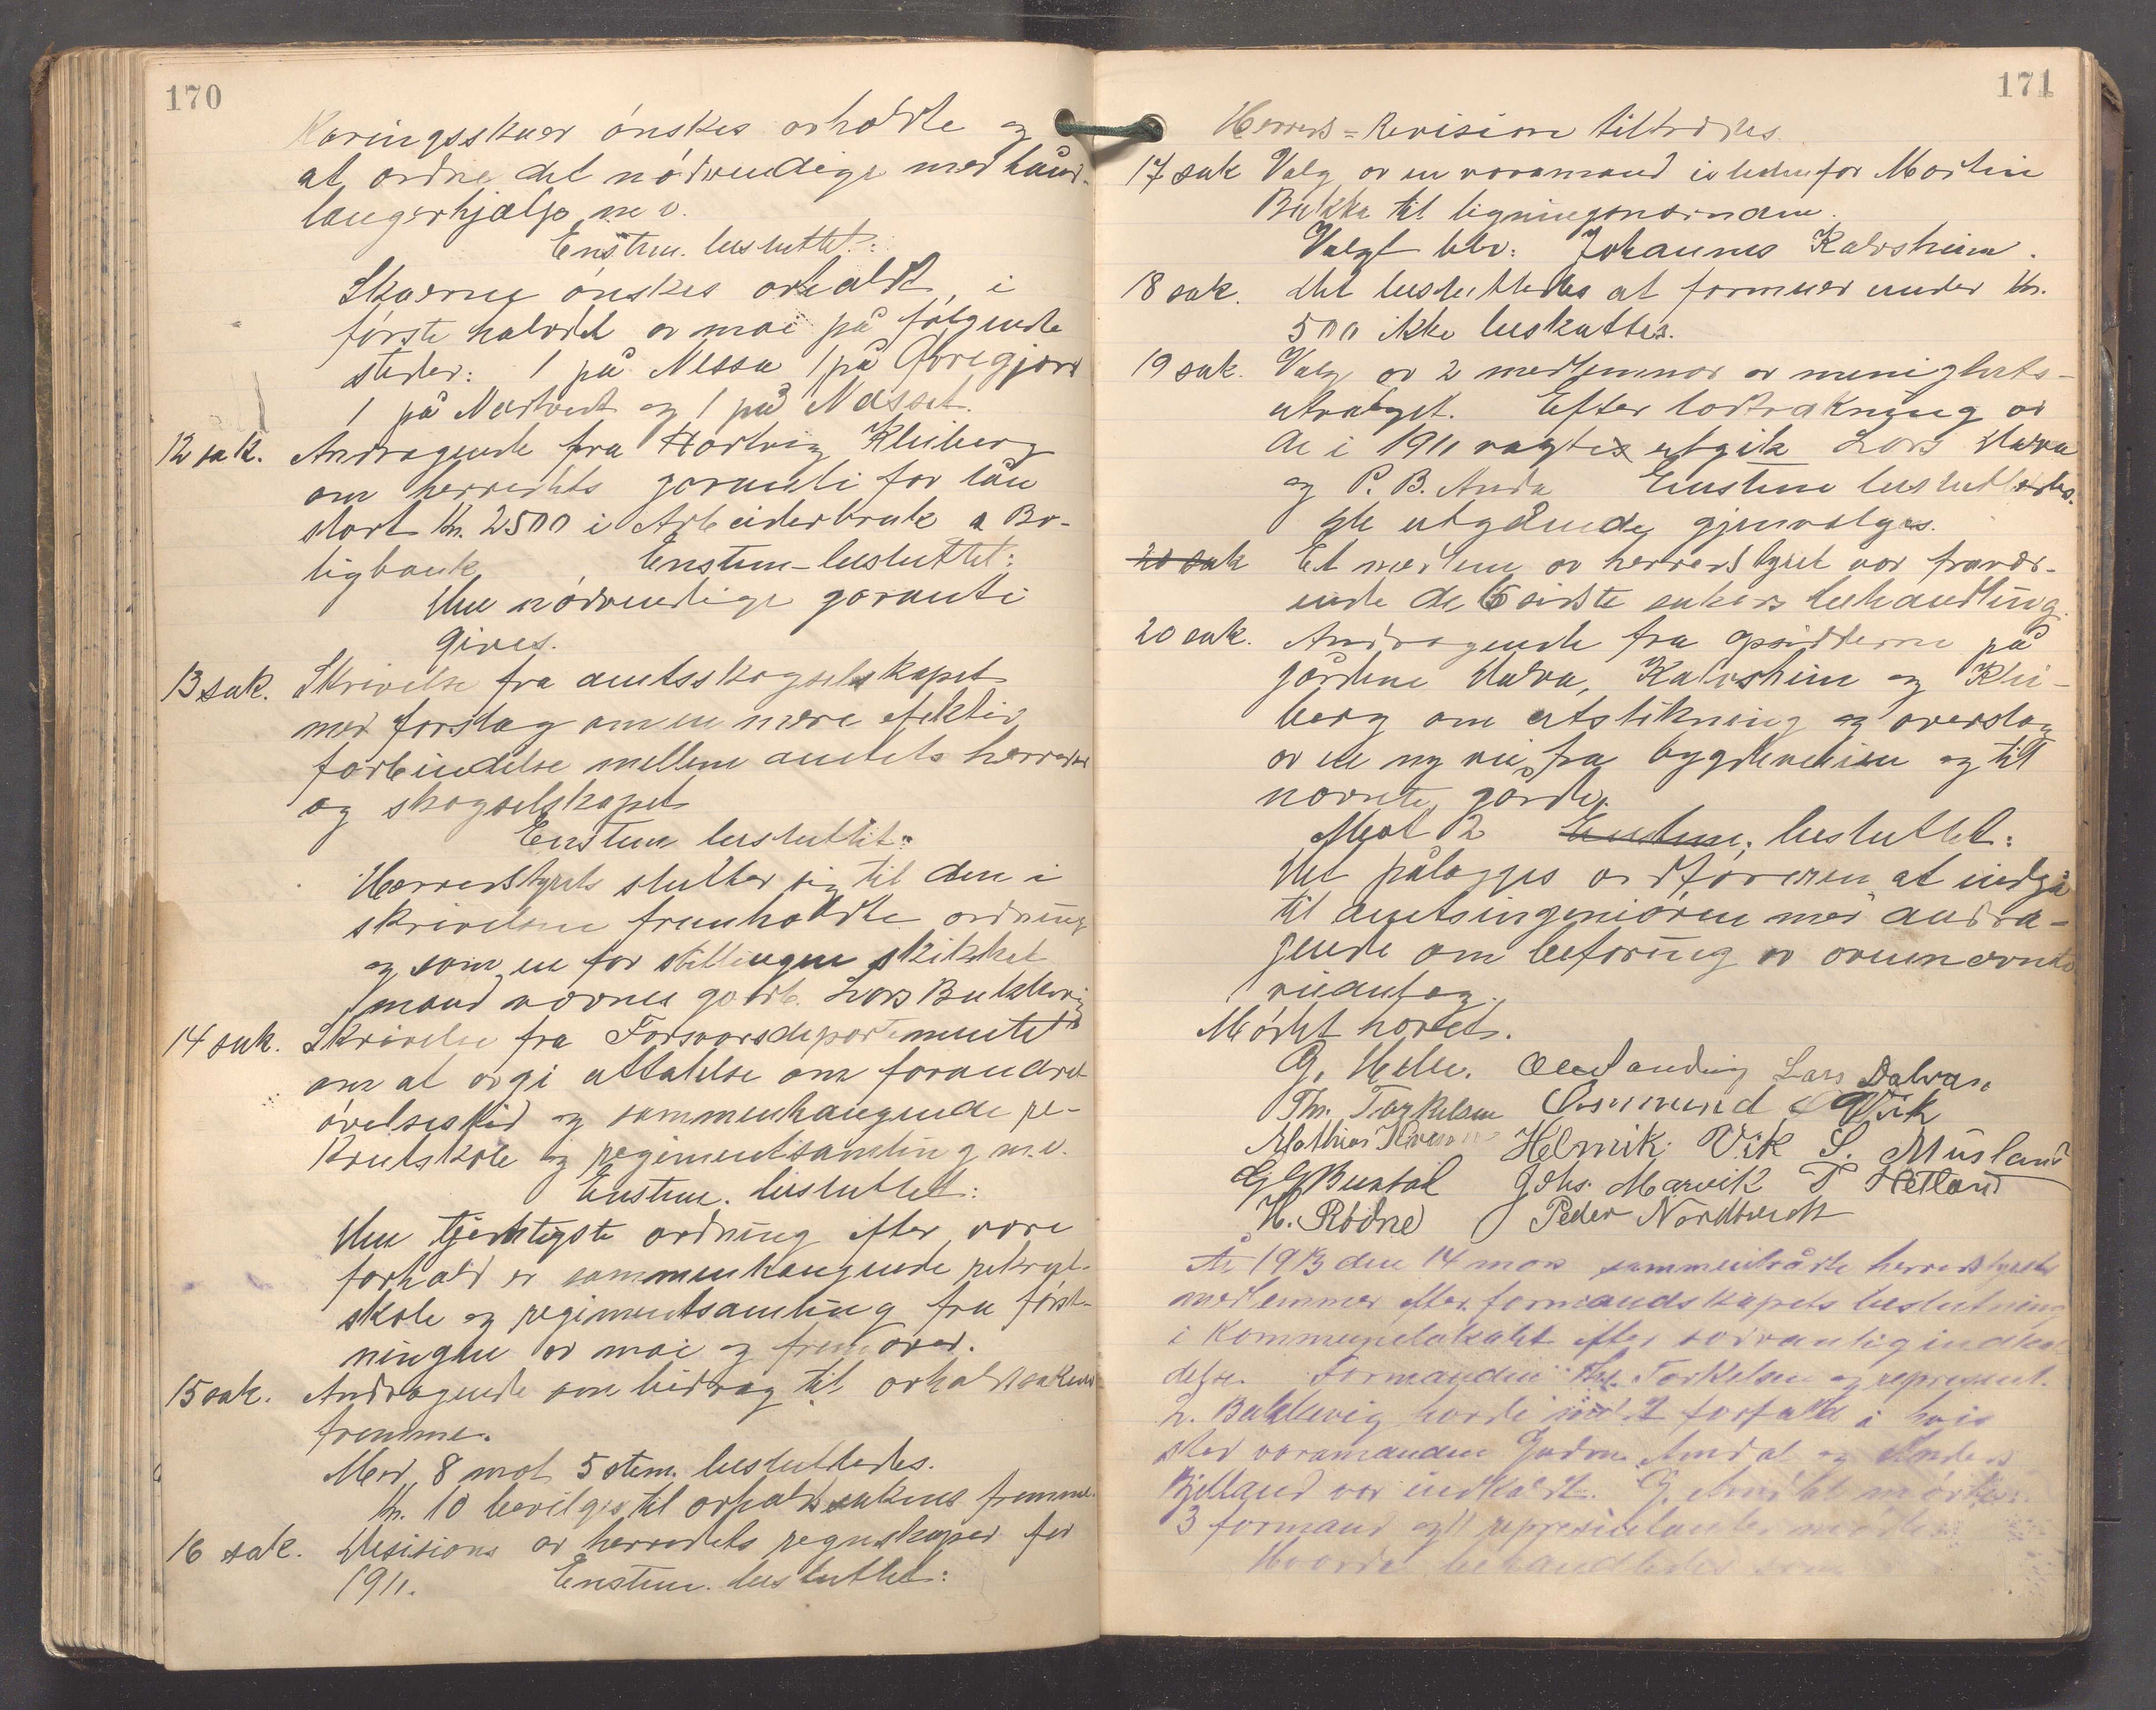 170
Kåringsskuer ønskes avholdte og
at ordne det nødvendige med hånd-
langerhjælp m v.
Enstem. besluttet:
Skuerne ønskes avholdt i
første halvdel av mai på følgende
steder: 1 på Nessa 1 på Øvregjord
1 på Nærtveit og 1 på Næsset.
12 sak. Andragende fra Hartvig Kleiberg
om herredets garanti for lån
stort kr. 2500 i Arbeiderbruk & Bo-
ligbank Enstem- besluttet:
Den nødvendige garanti
gives.
13 sak. Skrivelse fra amtsskogselskapet
med forslag om en mere efektiv
forbindelse mellem amtets herreder
og skogselskapet
Enstem besluttet:
Herredstyret slutter sig til den i
skrivelsen fremholdte ordning
og som en for stillingen skikket
mand nævnes gårdb. Lars Bakkevig
14 sak. Skrivelse fra Forsvarsdepartementet
om at avgi uttalelse om forandret
øvelsestid og sammenhængende re-
krutskole og regimentsamling m.v.
Enstem. besluttet:
Den tjenligste ordning efter vore
forhold er sammenhængende rekrut-
skole og regimentsamling fra først-
ningen av mai og fremover.
15 sak. Andragende om bidrag til avholdssakens
fremme.
Med 8 mot 5 stem. besluttedes.
Kr. 10 bevilges til avholdssakens fremme.
16 sak. Desisions av herredets regnskaper for
1911. Enstem. besluttet:
171
Herreds=Revision tiltrædes.
17 sak Valg av en varamand istedenfor Martin
Bakka til ligningsnævnden.
Valgt blv: Johannes Kalvsheim.
18 sak. Det besluttedes at formuer under kr.
500 ikke beskattes.
19 sak. Valg av 2 medlemmer av menighets-
utvalget. Efter lodtrækning av
de i 1911 valgte utgik Lars Dalva
og P. B. Anda Enstem besluttedes.
De utgående gjenvælges.
20 sak Et medlem av herredstyret var fravær-
ende de 5 sidste sakers behandling.
20 sak. Andragende fra opsidderne på
gårdene Dalva, Kalvsheim og Klei-
berg om utstikning og overslag
av en ny vei fra bygdeveien og til
nævnte gårde.
Mot 2 Enstem. besluttet:
Det pålægges ordføreren at indgå
til amtsingeniøren med andra-
gende om befaring av ovennævnte
veianlæg.
Mødet hævet.
G. Helle. Lars Dalva.
Th. Torkelsen Osmund Vik
Mathias Helmik Vik S. Musland
Johs. Marvik T Hetland
H. Rødne Peder Nordtveit
År 1913 den 14 mars sammentrådte herredstyrets
medlemmer efter formandskapets beslutning
i kommunelokalet efter sedvanlig indkal-
delse. Formanden Th. Torkelsen og represent.
L. Bakkevig havde meldt forfald i hvis
sted varamanden Gudm. Amdal og Anders
Bjelland var indkaldt. G. Amdal mødte.
3 formand og 11 representanter mødte.
Hvorda behandledes som